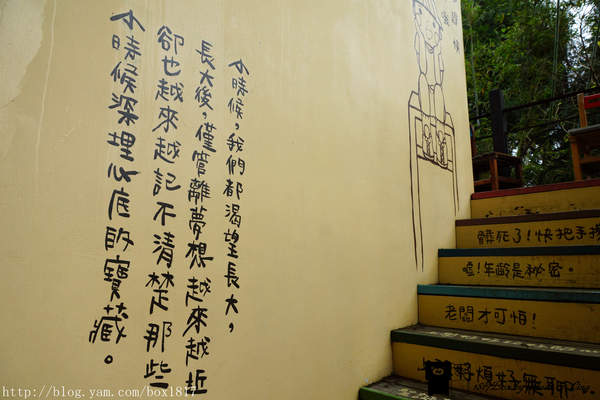 小時候，我們都渴望長大，
長大後，僅管離夢想越來越近
卻也越來越記不清楚那些
小時候深埋心底的寶藏。
髒死了！快把手
噓！年齡是祕密。
老闆才可怕！
好煩好無聊
http://blog.yam.com/box1817